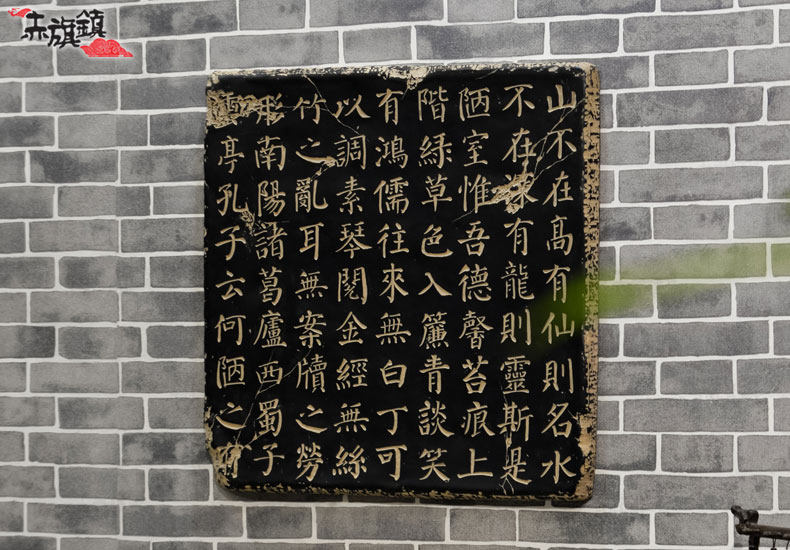 旗鎮
山不在高有仙則名水
不在深有龍則靈斯是
陋室惟吾德馨苔痕上
階綠草色入簾青談笑
有鴻儒往來無白丁可
以調素琴閱金經無絲
竹之亂耳無案牘之勞
形南陽諸葛廬西蜀子
雲亭孔子云何陋之有